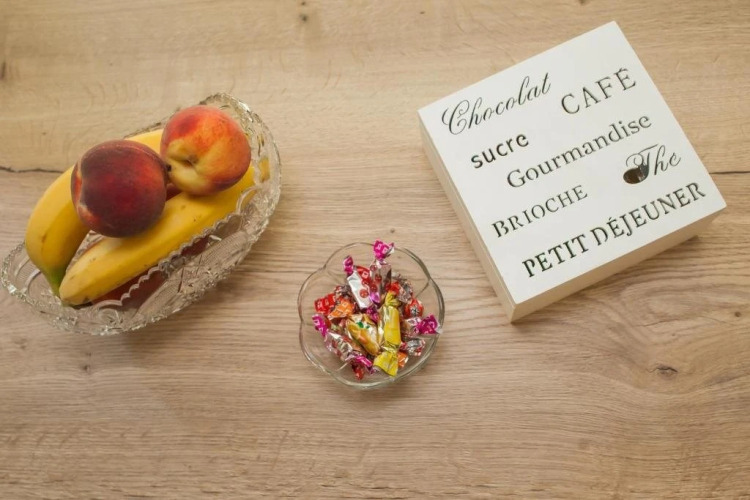 Chocolat
CAFÉ
sucre
Gourmandise
BRIOCHE
The
PETIT DÉJEUNER